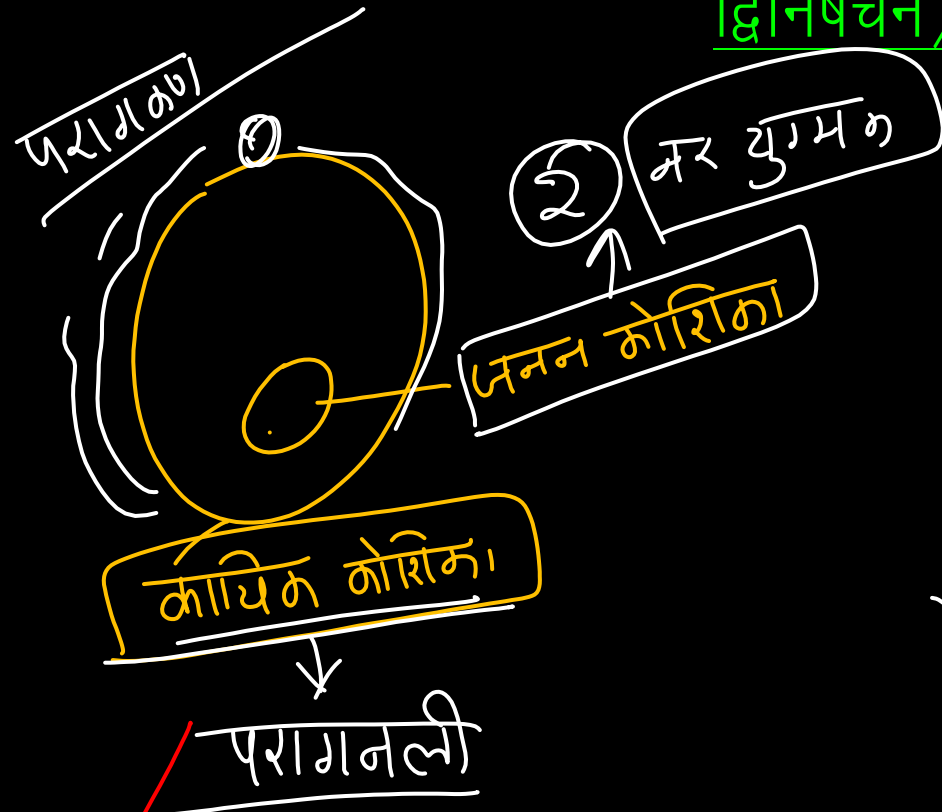 द्विनिषेचन
परागकण
2 नर युग्मक
जनन कोशिका
कायिक कोशिका
परागनली